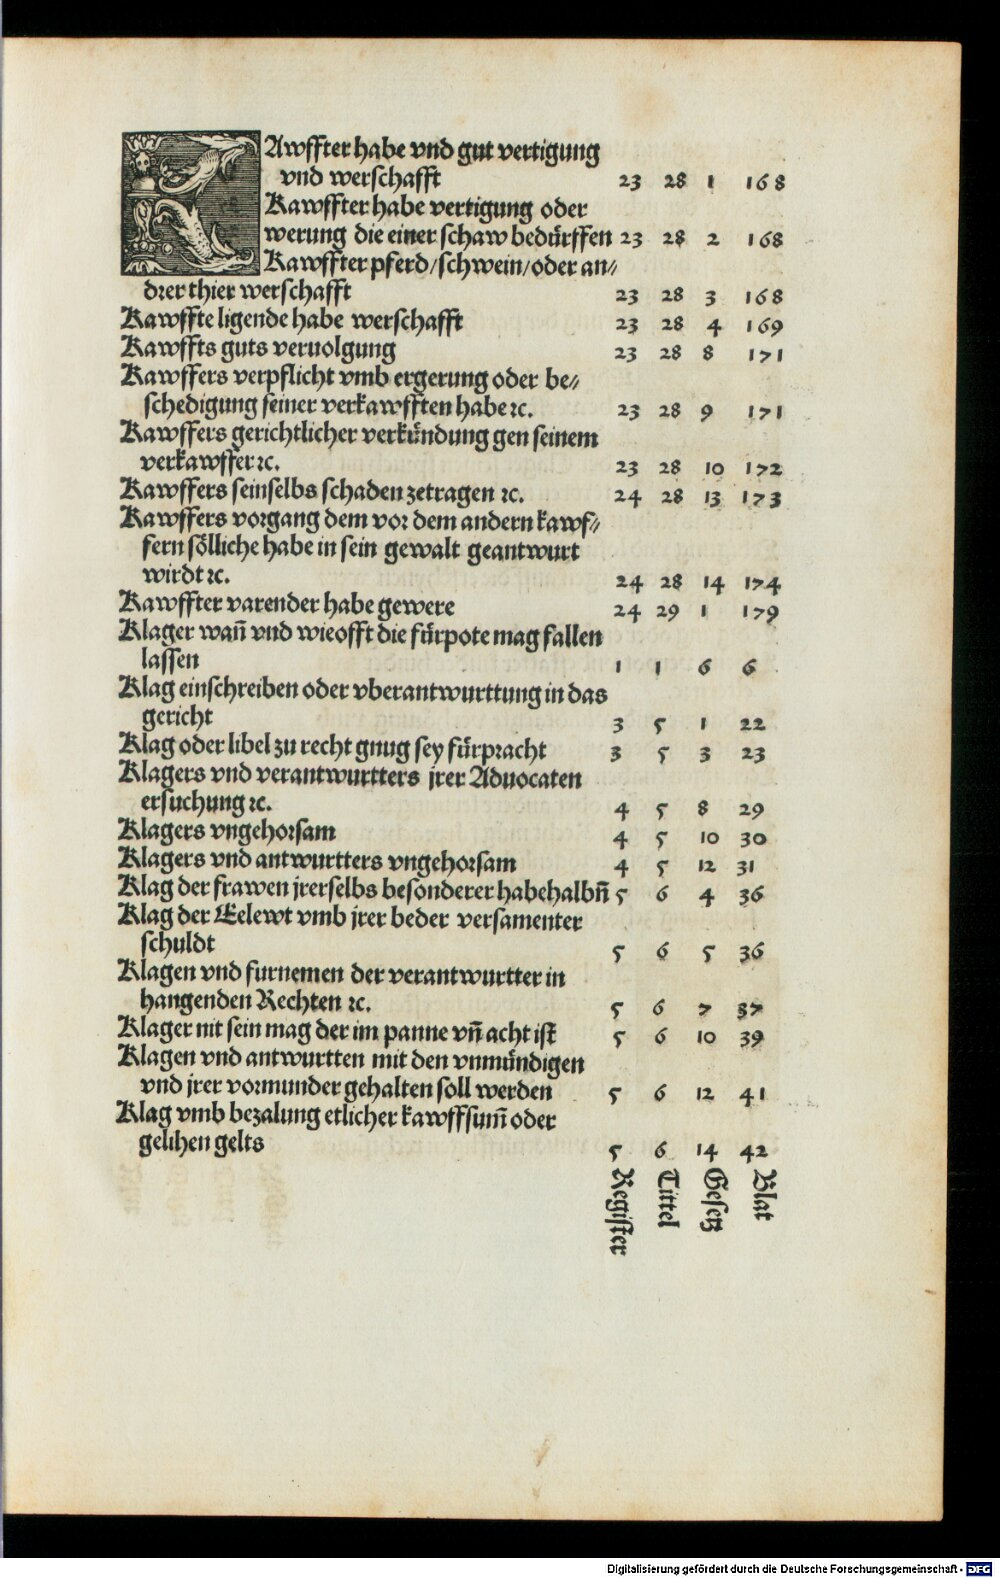 KAwffter habe vnd gut vertigung
vnd werschafft 23 28 1 168
Kawffter habe vertigung oder
werung die einer schaw bedürffen 23 28 2 168
Kawffter pferd/schwein/oder an⸗
drer thier werschafft 23 28 3 168
Kawffte ligende habe werschafft 23 28 4 169
Kawffts guts veruolgung 23 28 8 171
Kawffers verpflicht vmb ergerung oder be⸗
schedigung seiner verkawfften habe ꝛc. 23 28 9 171
Kawffers gerichtlicher verkündung gen seinem
verkawffer ꝛc. 23 28 10 172
Kawffers seinselbs schaden zetragen ꝛc. 24 28 13 173
Kawffers vorgang dem vor dem andern kawf⸗
fern sölliche habe in sein gewalt geantwurt
wirdt ꝛc. 24 28 14 174
Kawffter varender habe gewere 24 29 1 179
Klager wañ vnd wieofft die fürpote mag fallen
lassen 1 1 6 6
Klag einschreiben oder vberantwurttung in das
gericht 3 5 1 22
Klag oder libel zu recht gnug sey fürpracht 3 5 3 23
Klagers vnd verantwurtters jrer Aduocaten
ersuchung ꝛc. 4 5 8 29
Klagers vngehorsam 4 5 10 30
Klagers vnd antwurtters vngehorsam 4 5 12 31
Klag der frawen jrerselbs besonderer habehalbñ 5 6 4 36
Klag der Eelewt vmb jrer beder versamenter
schuldt 5 6 5 36
Klagen vnd furnemen der verantwurtter in
hangenden Rechten ꝛc. 5 6 7 37
Klager nit sein mag der im panne vñ acht ist 5 6 10 39
Klagen vnd antwurtten mit den vnmündigen
vnd jrer vormunder gehalten soll werden 5 6 12 41
Klag vmb bezalung etlicher kawffsum̃ oder
gelihen gelts 5 6 14 42
Register Tittel Gesetz Blat
Digitalisierung gefördert durch die Deutsche Forschungsgemeinschaft - DFG